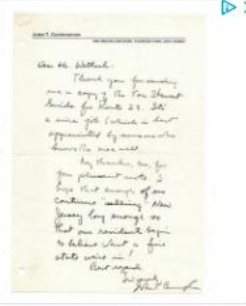 John T. Cunningham
Dear Mr.
Thank you for sending
me a copy of the
Guide for Route 22. It's
a nice job (which is best
appreciated by someone who
knows the area well.
My thanks, too, for
your pleasant note. I
hope that enough of us
continue "selling" New
Jersey long enough so
that our residents begin
to believe what a fine
state we're in!
Best regards
Sincerely
John T. Cunningham